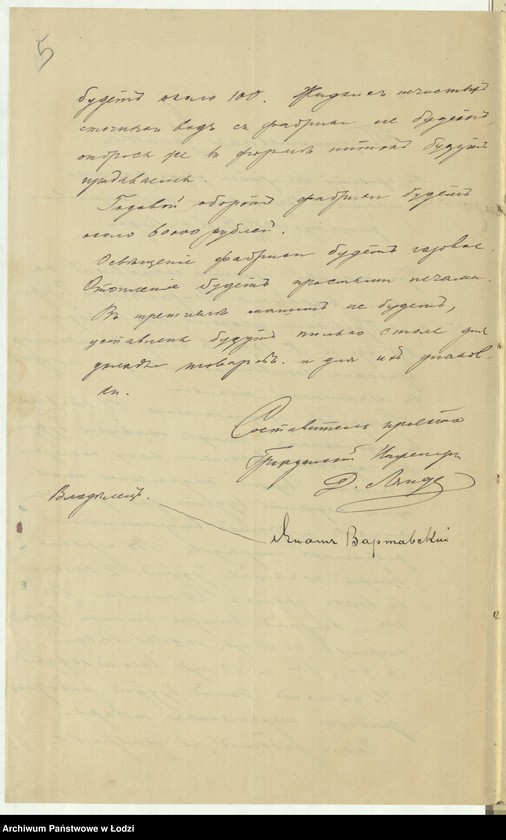 5
будетъ около 100. Жидкихъ нечистыхъ
сточныхъ водъ съ фабрики не будетъ,
отбросы же въ формѣ нитокъ будутъ
продаваемы.
Годовой оборотъ фабрики будетъ
около 60000 рублей.
Освѣщеніе фабрики будетъ газовое.
Отопленіе будетъ простыми печами.
Въ машинъ не будетъ,
уставлены будутъ только столы для
товаровъ и для ихъ упаков-
ки.
Составитель проекта
Гражданскій Инженеръ
Д. Ланде
Владѣлецъ.
Вартавскій
Archiwum Państwowe w Łodzi